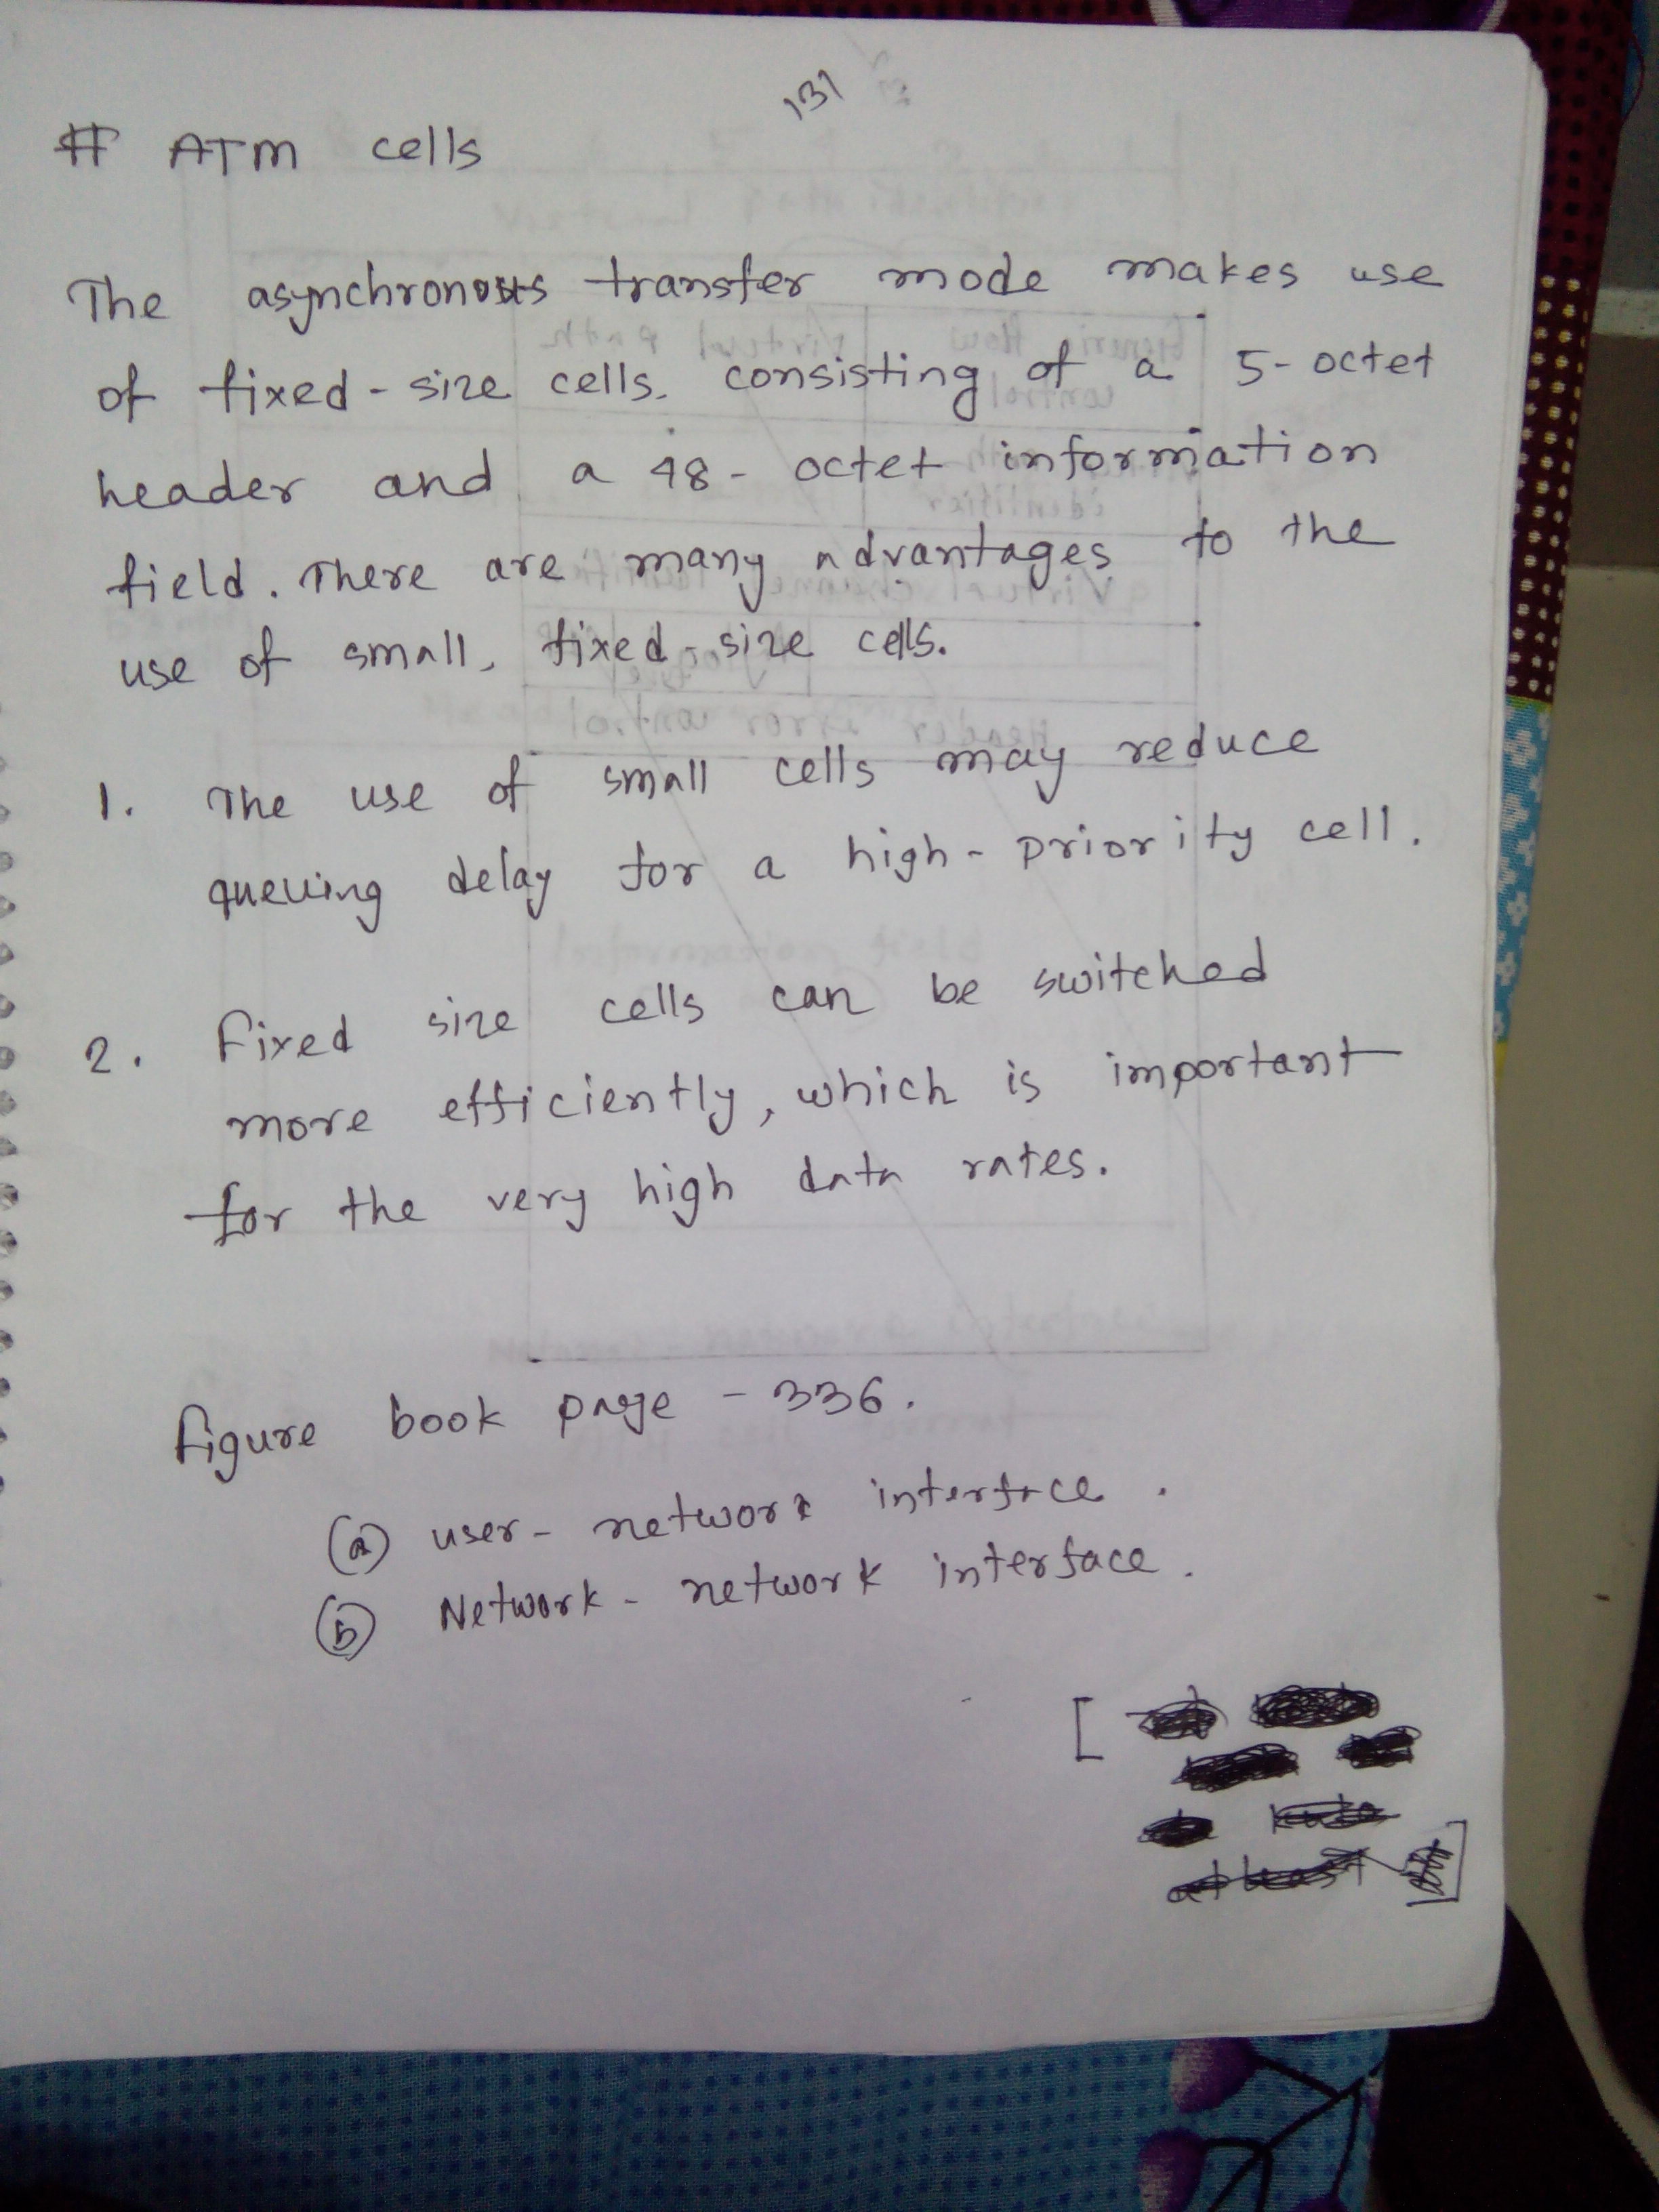 131
# ATM cells
The asynchronous transfer mode makes use
of fixed-size cells, consisting of a 5-octet
header and a 48-octet information
field. There are many advantages to the
use of small, fixed-size cells.
1. The use of small cells may reduce
queuing delay for a high-priority cell.
2. Fixed size cells can be switched
more efficiently, which is important
for the very high data rates.
Figure book page - 336.
(a) user-network interface.
(b) Network-network interface.
[
at least ]